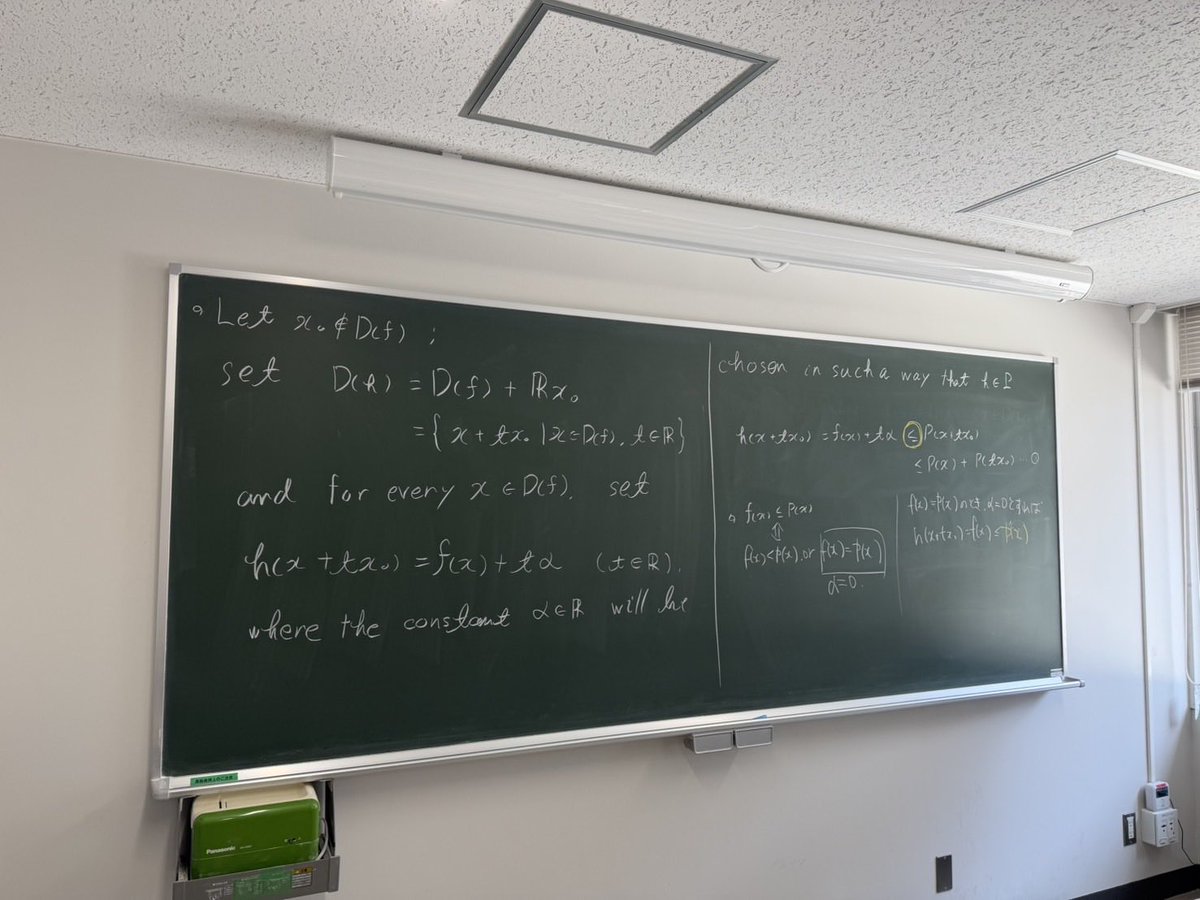 Let x₀ ∉ D(f) ;
set D(h) = D(f) + ℝx₀
= { x + tx₀ | x = D(f), t ∈ ℝ }
and for every x ∈ D(f), set
h(x + tx₀) = f(x) + tα (t ∈ ℝ),
where the constant α ∈ ℝ will be
chosen in such a way that h ∈ P
h(x + tx₀) = f(x) + tα ≤ P(x + tx₀)
≤ P(x) + P(tx₀) …①
f(x) ≤ P(x)
⇕
f(x) < P(x), or f(x) = P(x)
α = 0.
f(x) = P(x) のとき, α = 0 とすれば
h(x + tx₀) = f(x) ≤ P(x)
Panasonic